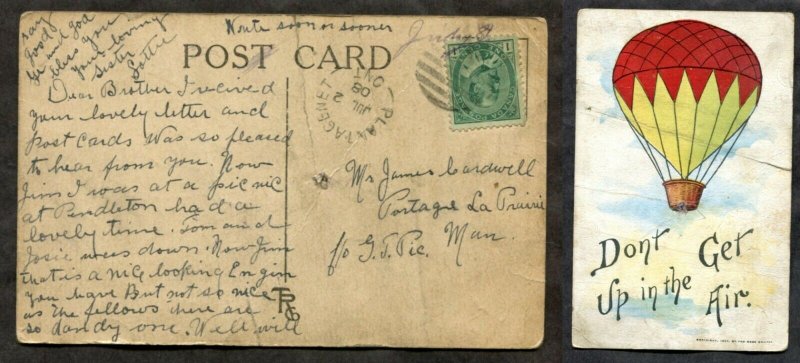 Write soon or sooner
say
Good
and God
bless you
your loving
Sister
Lottie
POST CARD
Dear Brother I recived
your lovely letter and
Post Cards was so pleased
to hear from you. Now
Jim I was at a picnic
at Pendleton had a
lovely time. Tom and
Josie was down. Now Jim
that is a nice looking Engin
you have But not so nice
as the fellows here are
so dandy one. Well will
PLANTAGENET
JUL 2
08
ONT
Mr James Cardwell
Portage La Prairie
Man.
c/o G.T.Pic.
Dont Get
Up in the Air.